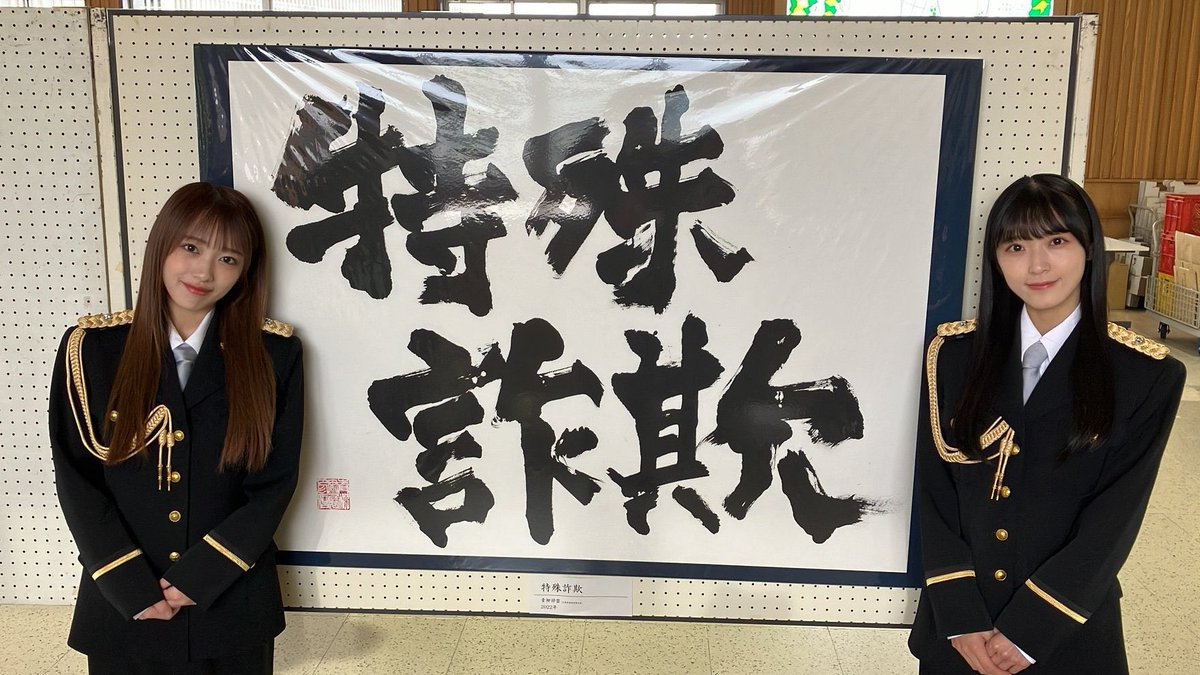 特殊
詐欺
特殊詐欺
2022年